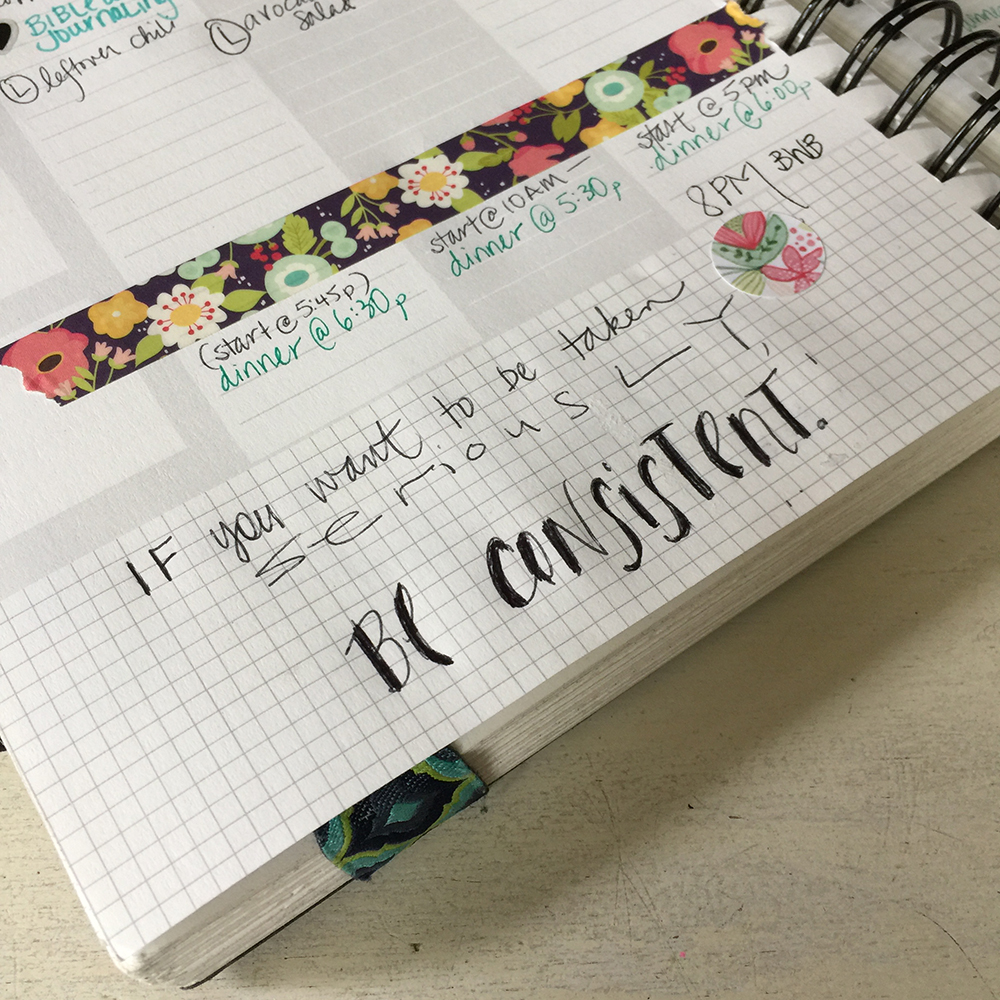 BIBLE
JOURNALING
Ⓛ leftover chili
Ⓛ avoca
salad
(start @ 5:45p)
dinner @ 6:30p
start @ 10AM –
dinner @ 5:30p
start @ 5pm
dinner @ 6:00p
8PM | BWB
IF you want to be taken
seriousLY,
Be consistent.